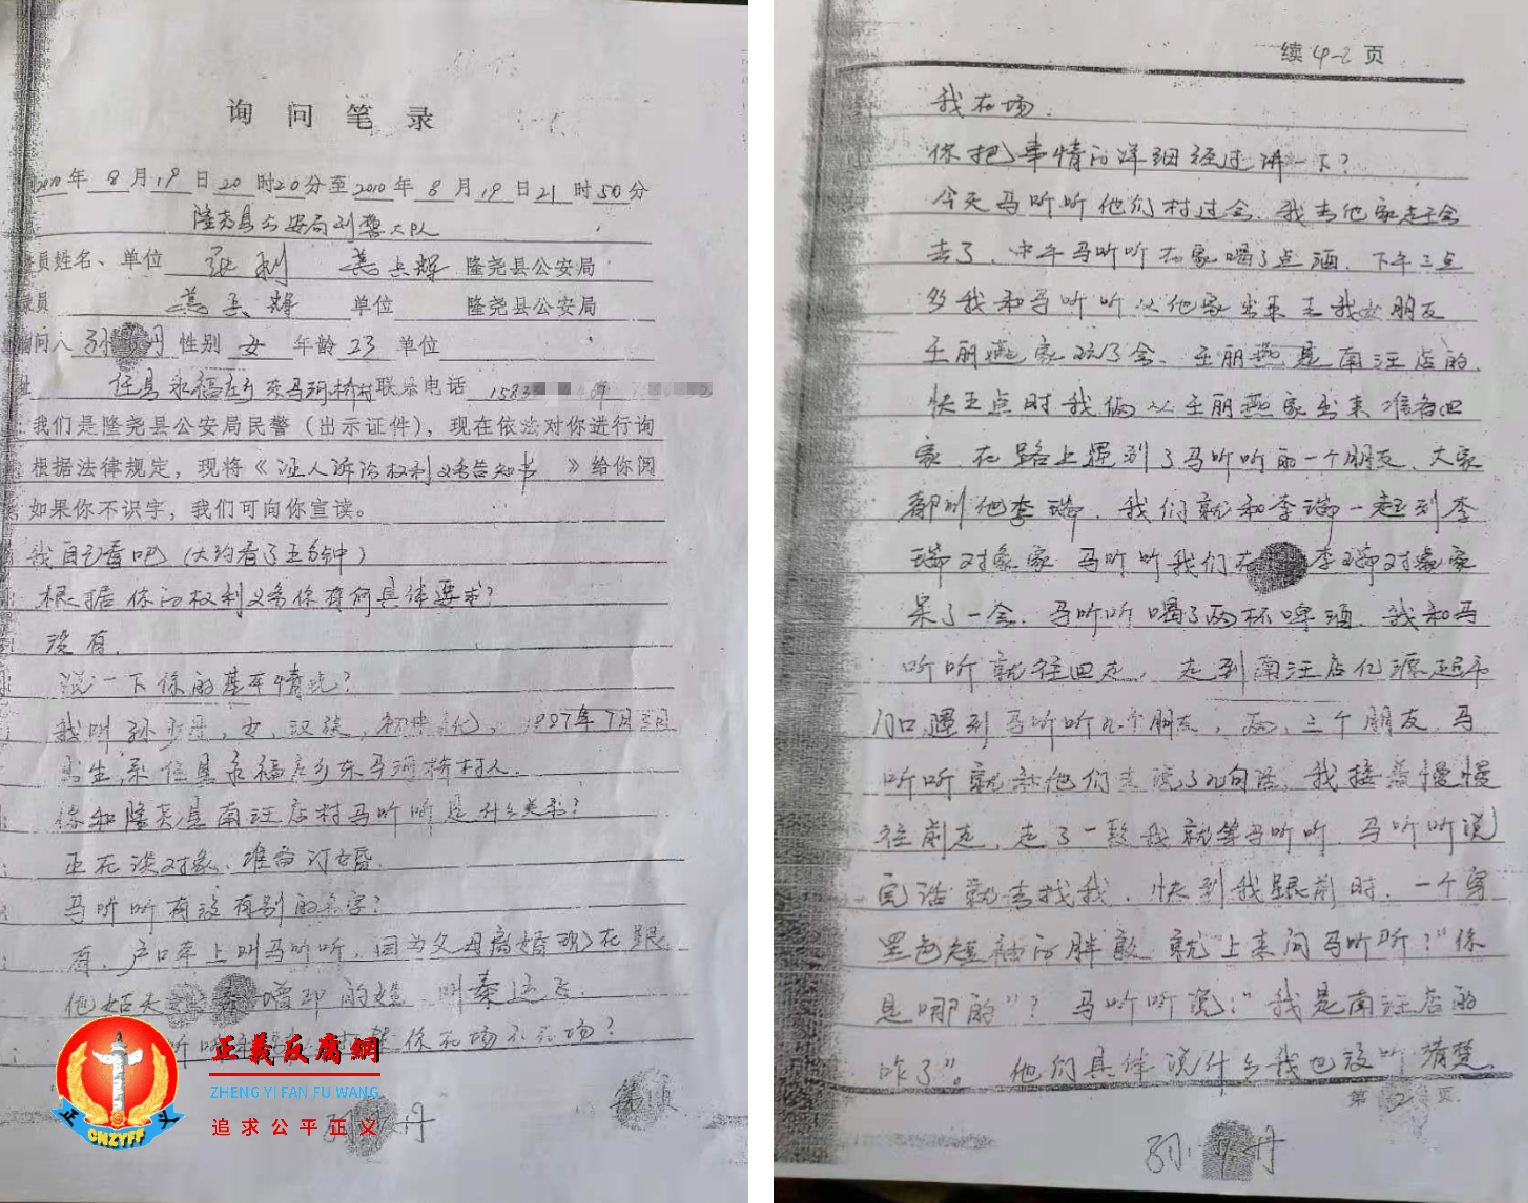 询 问 笔 录
2010 年 8 月 19 日 20 时 20 分至 2010 年 8 月 19 日 21 时 50 分
隆尧县公安局刑警大队
员姓名、单位 张利 辉 隆尧县公安局
录员 辉 单位 隆尧县公安局
问人 孙 丹 性别 女 年龄 23 单位
址 任县永福庄乡东马河桥村 联系电话 1583
我们是隆尧县公安局民警（出示证件），现在依法对你进行询
根据法律规定，现将《 证人诉讼权利义务告知书 》给你阅
如果你不识字，我们可向你宣读。
我自己看吧（大约看了五分钟）
根据你的权利义务你有何具体要求？
没有．
说一下你的基本情况？
我叫孙 丹，女，汉族，初中文化，1987年7月5日
出生，系任县永福庄乡东马河桥村人．
你和隆尧县南汪店村马听听是什么关系？
正在谈对象、准备订婚．
马听听有没有别的名字？
有，户口本上叫马听听，因为父母离婚现在跟
他姑夫 秦增印的姓，叫秦
听听 你在场不在场？
正義反腐網
ZHENG YI FAN FU WANG
追求公平正义
正 CNZYFF 义
孙 丹
第 页
续 4-2 页
我在场．
你把事情的详细经过讲一下？
今天马听听他们村过会，我去他家赶会
去了，中午马听听在家喝了点酒，下午三点
多我和马听听从他家出来去我女朋友
王丽燕家玩了会、王丽燕是南汪店的，
快五点时我俩从王丽燕家出来准备回
家，在路上遇到了马听听的一个朋友，大家
都叫他李瑞，我们就和李瑞一起到李
瑞对象家 马听听我们在 李瑞对象家
呆了一会，马听听喝了两杯啤酒，我和马
听听就往回走，走到南汪店亿源超市
门口遇到马听听几个朋友，两、三个朋友，马
听听就和他们去说了几句话，我接着慢慢
往前走，走了一段我就等马听听，马听听说
完话就去找我，快到我跟前时，一个穿
黑色短袖的胖 就上来问马听听？"你
是哪的"？马听听说："我是南汪店的
咋了"。他们具体说什么我也没听清楚，
第 2 页
孙 丹